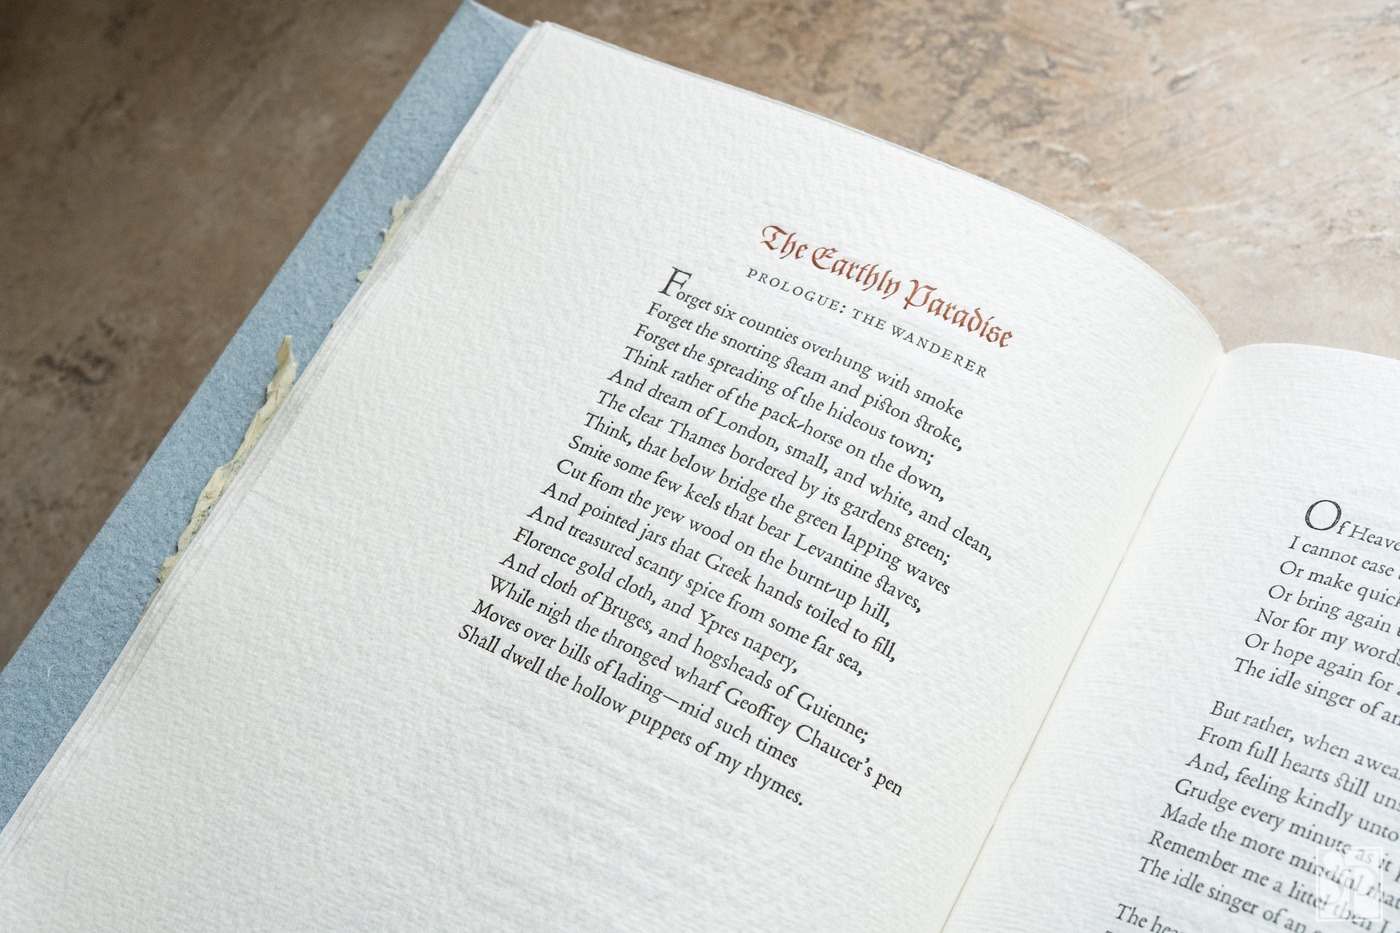 The Earthly Paradise
PROLOGUE: THE WANDERER
Forget six counties overhung with smoke
Forget the snorting steam and piston stroke,
Forget the spreading of the hideous town;
Think rather of the pack-horse on the down,
And dream of London, small, and white, and clean,
The clear Thames bordered by its gardens green;
Think, that below bridge the green lapping waves
Smite some few keels that bear Levantine staves,
Cut from the yew wood on the burnt-up hill,
And pointed jars that Greek hands toiled to fill,
And treasured scanty spice from some far sea,
Florence gold cloth, and Ypres napery,
And cloth of Bruges, and hogsheads of Guienne;
While nigh the thronged wharf Geoffrey Chaucer's pen
Moves over bills of lading—mid such times
Shall dwell the hollow puppets of my rhymes.
Of Heav
I cannot ease
Or make quick
Or bring again
Nor for my word
Or hope again for
The idle singer of an
But rather, when awea
From full hearts still un
And, feeling kindly unto
Grudge every minute as it
Made the more mindful that
Remember me a little then I
The idle singer of an
The hea